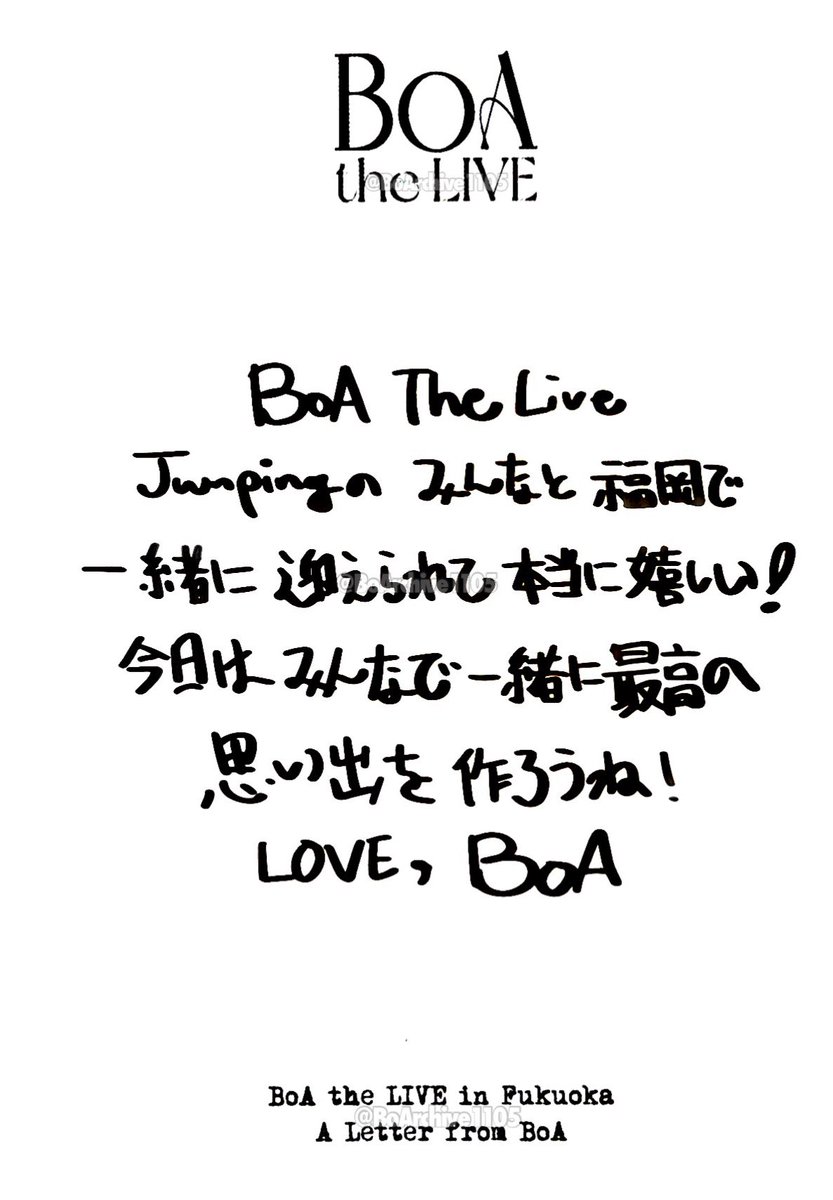 BOA
the LIVE
@BoArchive1105
BoA The Live
Jumpingの みんなと 福岡で
一緒に 迎えられて 本当に 嬉しい!
@BoArchive1105
今日は みんなで 一緒に 最高の
思い出を 作ろうね!
LOVE, BoA
BoA the LIVE in Fukuoka
@BoArchive1105
A Letter from BoA